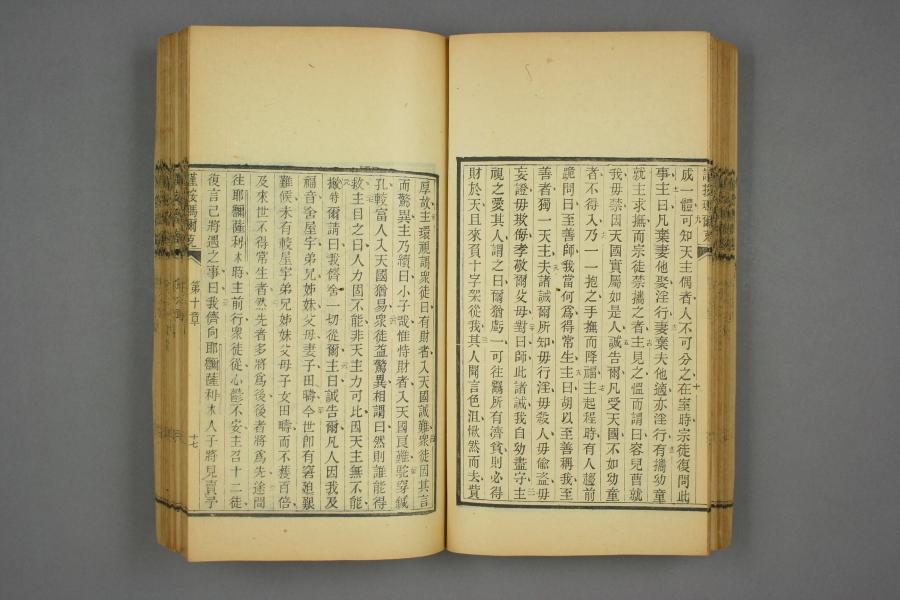 成一體可知天主偶者人不可分之在室時宗徒復問此
事主曰凡棄妻他娶淫行妻棄夫他適亦淫行有攜幼童
就主求撫而宗徒禁攜之者主見之慍而謂曰容兒曹就
我毋禁因天國實屬如是人誠告爾凡受天國不如幼童
者不得入乃一一抱之手撫而降福主起程時有人趨前
跪問曰至善師我當何為得常生主曰胡以至善稱我至
善者獨一天主夫諸誡爾所知毋行淫毋殺人毋偷盜毋
妄證毋欺侮孝敬爾父母對曰師此諸誡我自幼盡守主
視之愛其人謂之曰爾猶虧一可往鬻所有濟貧則必得
財於天且來負十字架從我其人聞言色沮愀然而去貲
厚故主環視謂眾徒曰有財者入天國誠難眾徒因其言
而驚異主乃續曰小子哉惟恃財者入天國良難駝穿鍼
孔較富人入天國猶易眾徒益驚異相謂曰然則誰能得
救主目之曰人力固不能非天主力可比因天主無不能
撒特爾請曰我儕舍一切從爾主曰誠告爾凡人因我及
福音舍屋宇弟兄姊妹父母妻子田疇今世卽有窘迫艱
難候未有較屋宇弟兄姊妹父母子女田疇而不獲百倍
及來世不得常生者然先者多將為後後者將為先途間
往耶爾薩利木時主前行眾徒從心鬱不安主召十二徒
復言己將遇之事曰我儕向耶爾薩利木人子將見賣予
謹按瑪爾克
第十章
十七